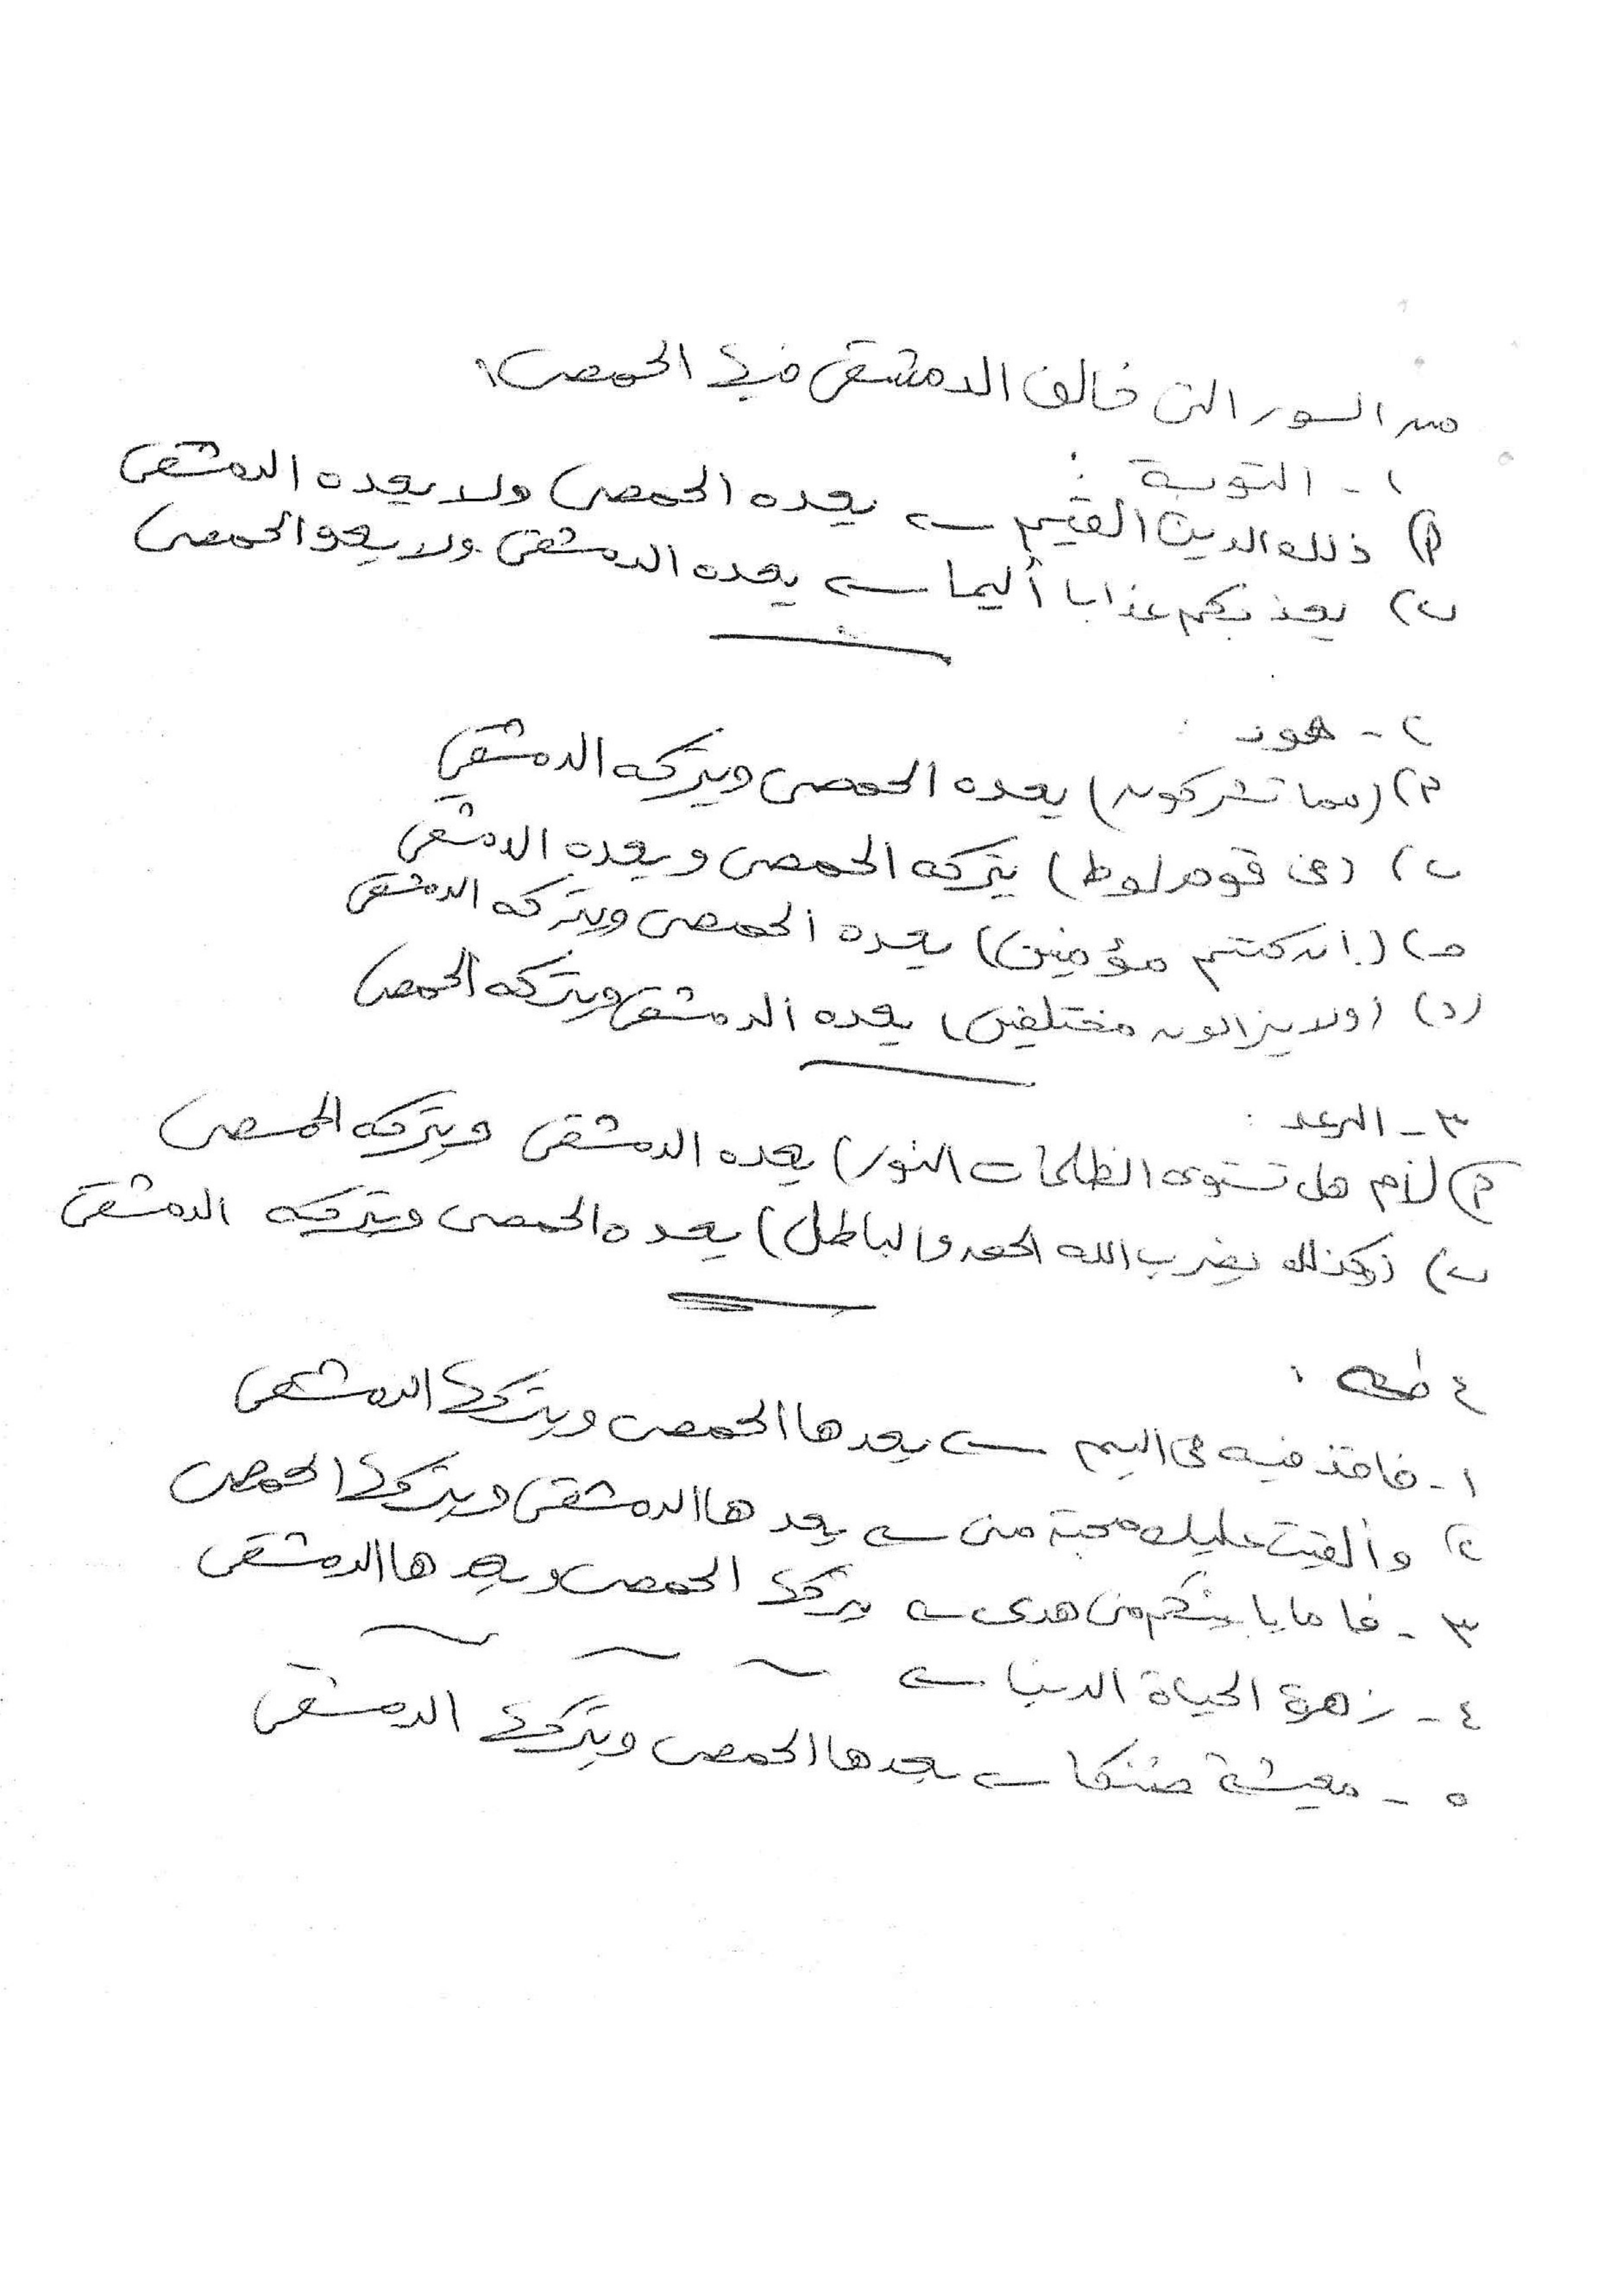 من السور التى خالف الدمشقى فيها الحمصى:
١ - التوبة :
أ) ذلك الدين القيم ← يعده الحمصى ولا يعده الدمشقى
ب) يعذبكم عذابا أليما ← يعده الدمشقى ولا يعده الحمصى
٢ - هود :
أ) (مما تشركون) يعده الحمصى ويتركه الدمشقى
ب) (فى قوم لوط) يتركه الحمصى ويعده الدمشقى
ح) (إن كنتم مؤمنين) يعده الحمصى ويتركه الدمشقى
(د) (ولا يزالون مختلفين) يعده الدمشقى ويتركه الحمصى
٣ - الرعد :
أ) (أم هل تستوى الظلمات النور) يعده الدمشقى ويتركه الحمصى
ب) (كذلك يضرب الله الحق والباطل) يعده الحمصى ويتركه الدمشقى
٤ طه :
١ - فاقذفيه فى اليم ← يعدها الحمصى ويتركها الدمشقى
٢ وألقيت عليك محبة منى ← يعدها الدمشقى ويتركها الحمصى
٣ - فاما يأتينكم منى هدى ← يتركها الحمصى ويعدها الدمشقى
٤ - زهرة الحياة الدنيا ← ~ ~ ~
٥ - معيشة ضنكا ← يعدها الحمصى ويتركها الدمشقى